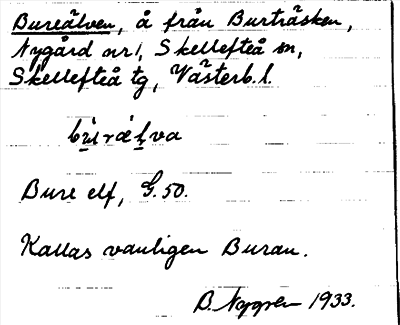 Bureälven, å från Burträsken,
Nygård nr 1, Skellefteå sn,
Skellefteå tg, Västerb. l.
Bure elf, G. 50.
Kallas vanligen Buran.
B. Nygren 1933.